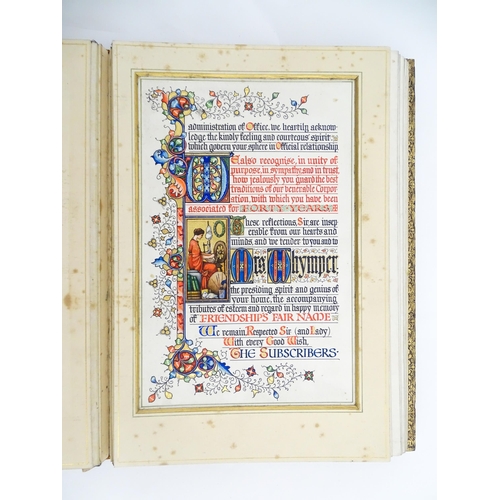 administration of Office, we heartily acknow
ledge the kindly feeling and courteous spirit
which govern your sphere in Official relationship
We also recognise, in unity of
purpose, in sympathy, and in trust,
how jealously you guard the best
traditions of our venerable Corpor
ation, with which you have been
associated for FORTY YEARS.
These reflections, Sir, are insep
erable from our hearts and
minds, and we tender to you and to
Mrs Whymper,
the presiding spirit and genius of
your home, the accompanying
tributes of esteem and regard in happy memory
of FRIENDSHIPS FAIR NAME
We remain Respected Sir (and Lady)
With every Good Wish,
THE SUBSCRIBERS.